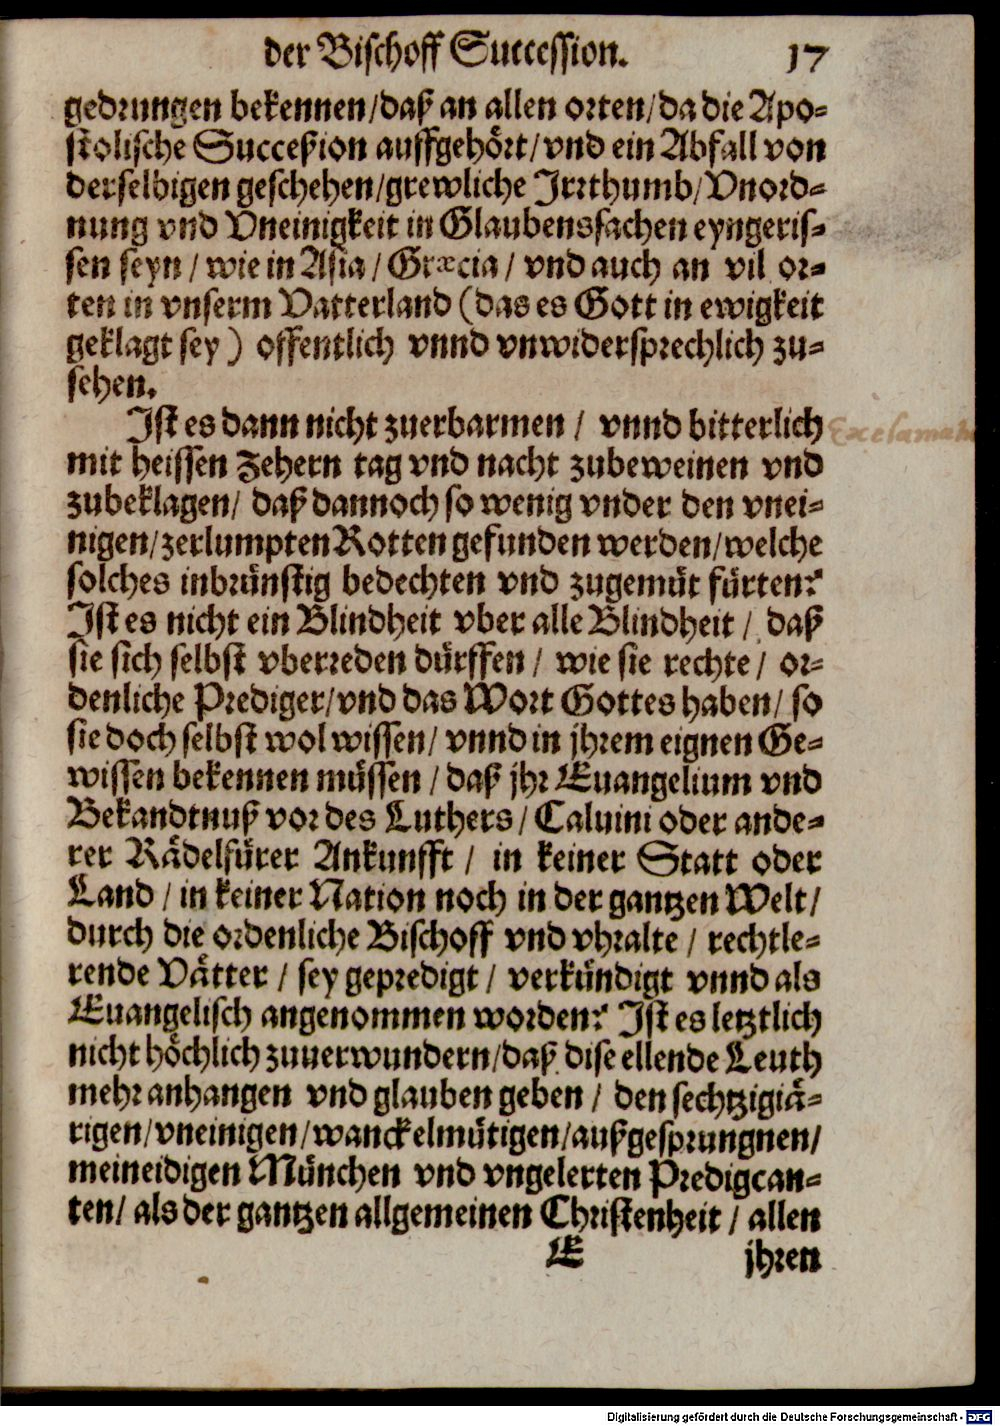 der Bischoff Succession. 17
gedrungen bekennen/daß an allen orten/da die Apo-
stolische Succeßion auffgehört/vnd ein Abfall von
derselbigen geschehen/grewliche Irrthumb/Vnord-
nung vnd Vneinigkeit in Glaubenssachen eyngeris-
sen seyn/wie in Asia/Græcia/vnd auch an vil or-
ten in vnserm Vatterland (das es Gott in ewigkeit
geklagt sey) offentlich vnnd vnwidersprechlich zu-
sehen.
Ist es dann nicht zuerbarmen/ vnnd bitterlich
mit heissen Zehern tag vnd nacht zubeweinen vnd
zubeklagen/ daß dannoch so wenig vnder den vnei-
nigen/zerlumpten Rotten gefunden werden/welche
solches inbrünstig bedechten vnd zugemüt fürten?
Ist es nicht ein Blindheit vber alle Blindheit/ daß
sie sich selbst vberreden dürffen/ wie sie rechte/ or-
denliche Prediger/vnd das Wort Gottes haben/ so
sie doch selbst wol wissen/ vnnd in jhrem eignen Ge-
wissen bekennen müssen/daß jhr Euangelium vnd
Bekandtnuß vor des Luthers/ Caluini oder ande-
rer Rädelfürer Ankunfft/ in keiner Statt oder
Land/in keiner Nation noch in der gantzen Welt/
durch die ordenliche Bischoff vnd vhralte/ rechtle-
rende Vätter/ sey gepredigt/ verkündigt vnnd als
Euangelisch angenommen worden? Ist es letztlich
nicht höchlich zuuerwundern/daß dise ellende Leuth
mehr anhangen vnd glauben geben/ den sechtzigjä-
rigen/vneinigen/wanckelmütigen/außgesprungnen/
meineidigen München vnd vngelerten Predigcan-
ten/ als der gantzen allgemeinen Christenheit/ allen
E jhren
Digitalisierung gefördert durch die Deutsche Forschungsgemeinschaft - DFG